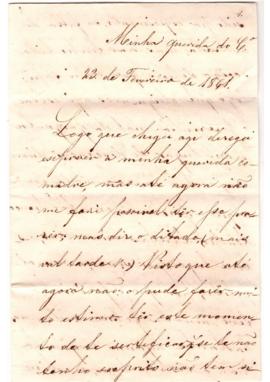 Minha querida do C.ª
22 de Fevereiro de 1861.
Logo que cheguei aqui desejei
escrever a minha querida co-
madre mas até agora não
me foi possivel ter esse pra-
zer, mas diz o ditado (mais
val tarde &.) Visto que até
agora não o pude fazer, mui-
to estimo ter este momen-
to de te sertificar, q se te não
tenho não tem si